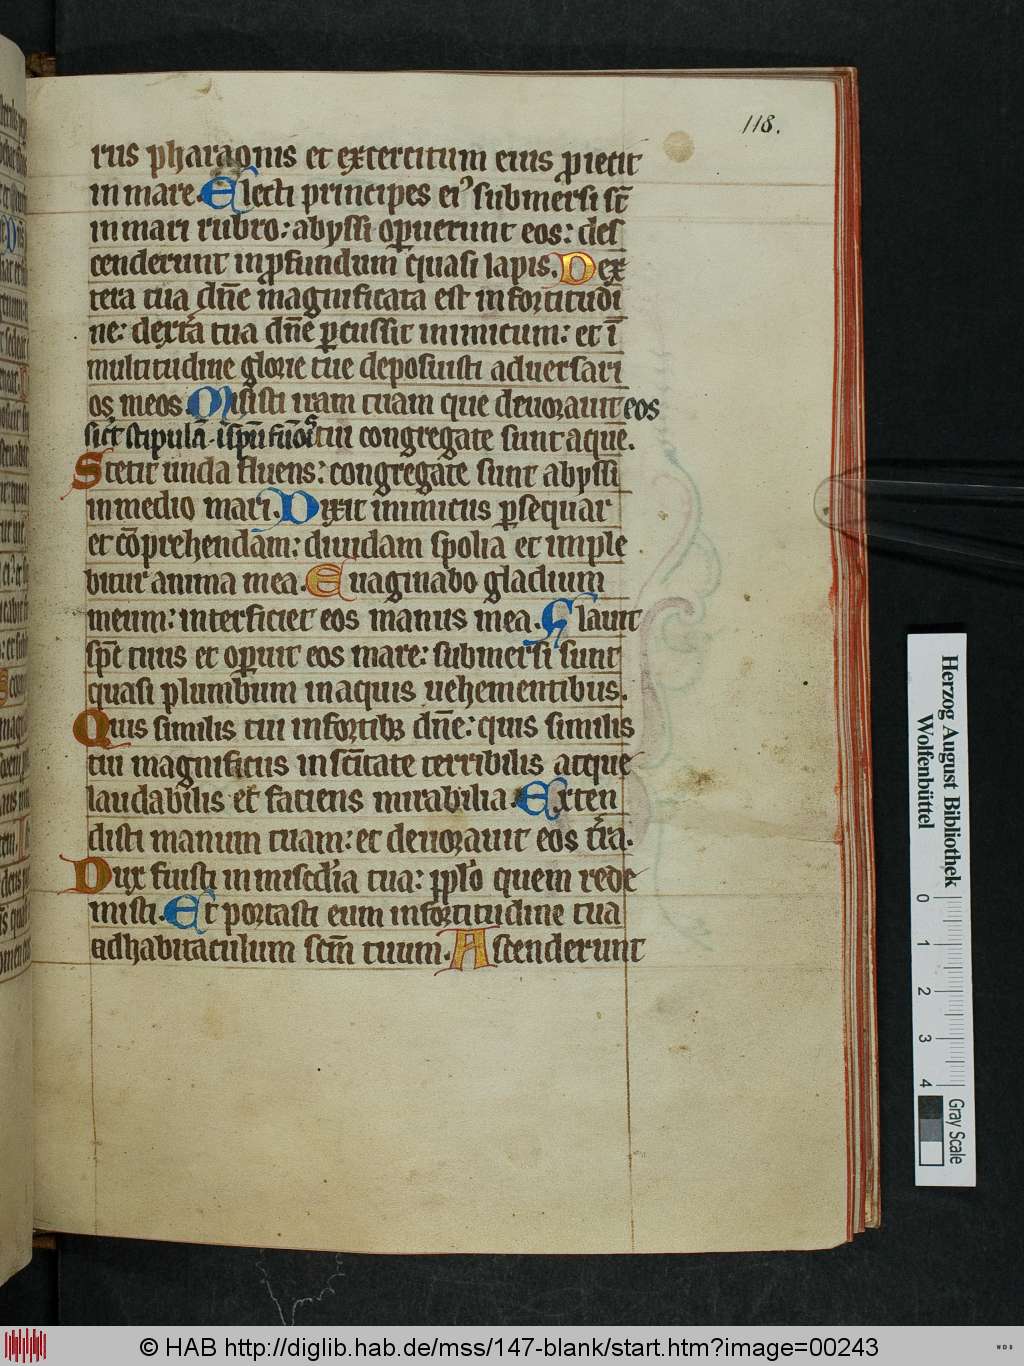 118.
rus pharaonis et exercitum eius ꝓiecit
in mare. Electi principes ei᷒ submersi st̄
in mari rubro: abyssi oꝑuerunt eos: des
cenderunt in ꝓfundum quasi lapis. Dex
tera tua dn̄e magnificata est in fortitudi
ne: dextra tua dn̄e ꝑcussit inimicum: et ī
multitudine glorie tue deposuisti aduersari
os meos. Misisti iram tuam que deuorauit eos
sict̄ stipulā. ī sp̄u fuꝛoꝛis tui congregate sunt aque.
Stetit unda fluens: congregate sunt abyssi
in medio mari. Dixit inimicus ꝑsequar
et cōprehendam: diuidam spolia et imple
bitur anima mea. Euaginabo gladium
meum: interficiet eos manus mea. Flauit
sp̄c tuus et oꝑuit eos mare: submersi sunt
quasi plumbum in aquis uehementibus.
Quis similis tui in fortibꝫ dn̄e: quis similis
tui magnificus in sc̄itate terribilis atque
laudabilis et faciens mirabilia. Exten
disti manum tuam: et deuorauit eos tr̄a.
Dux fuisti in misc̄dia tua: ppl̄o quem rede
misti. Et portasti eum in fortitudine tua
ad habitaculum scm̄ tuum. Ascenderunt
Herzog August Bibliothek
Wolfenbüttel
0 1 2 3 4
Gray Scale
© HAB http://diglib.hab.de/mss/147-blank/start.htm?image=00243